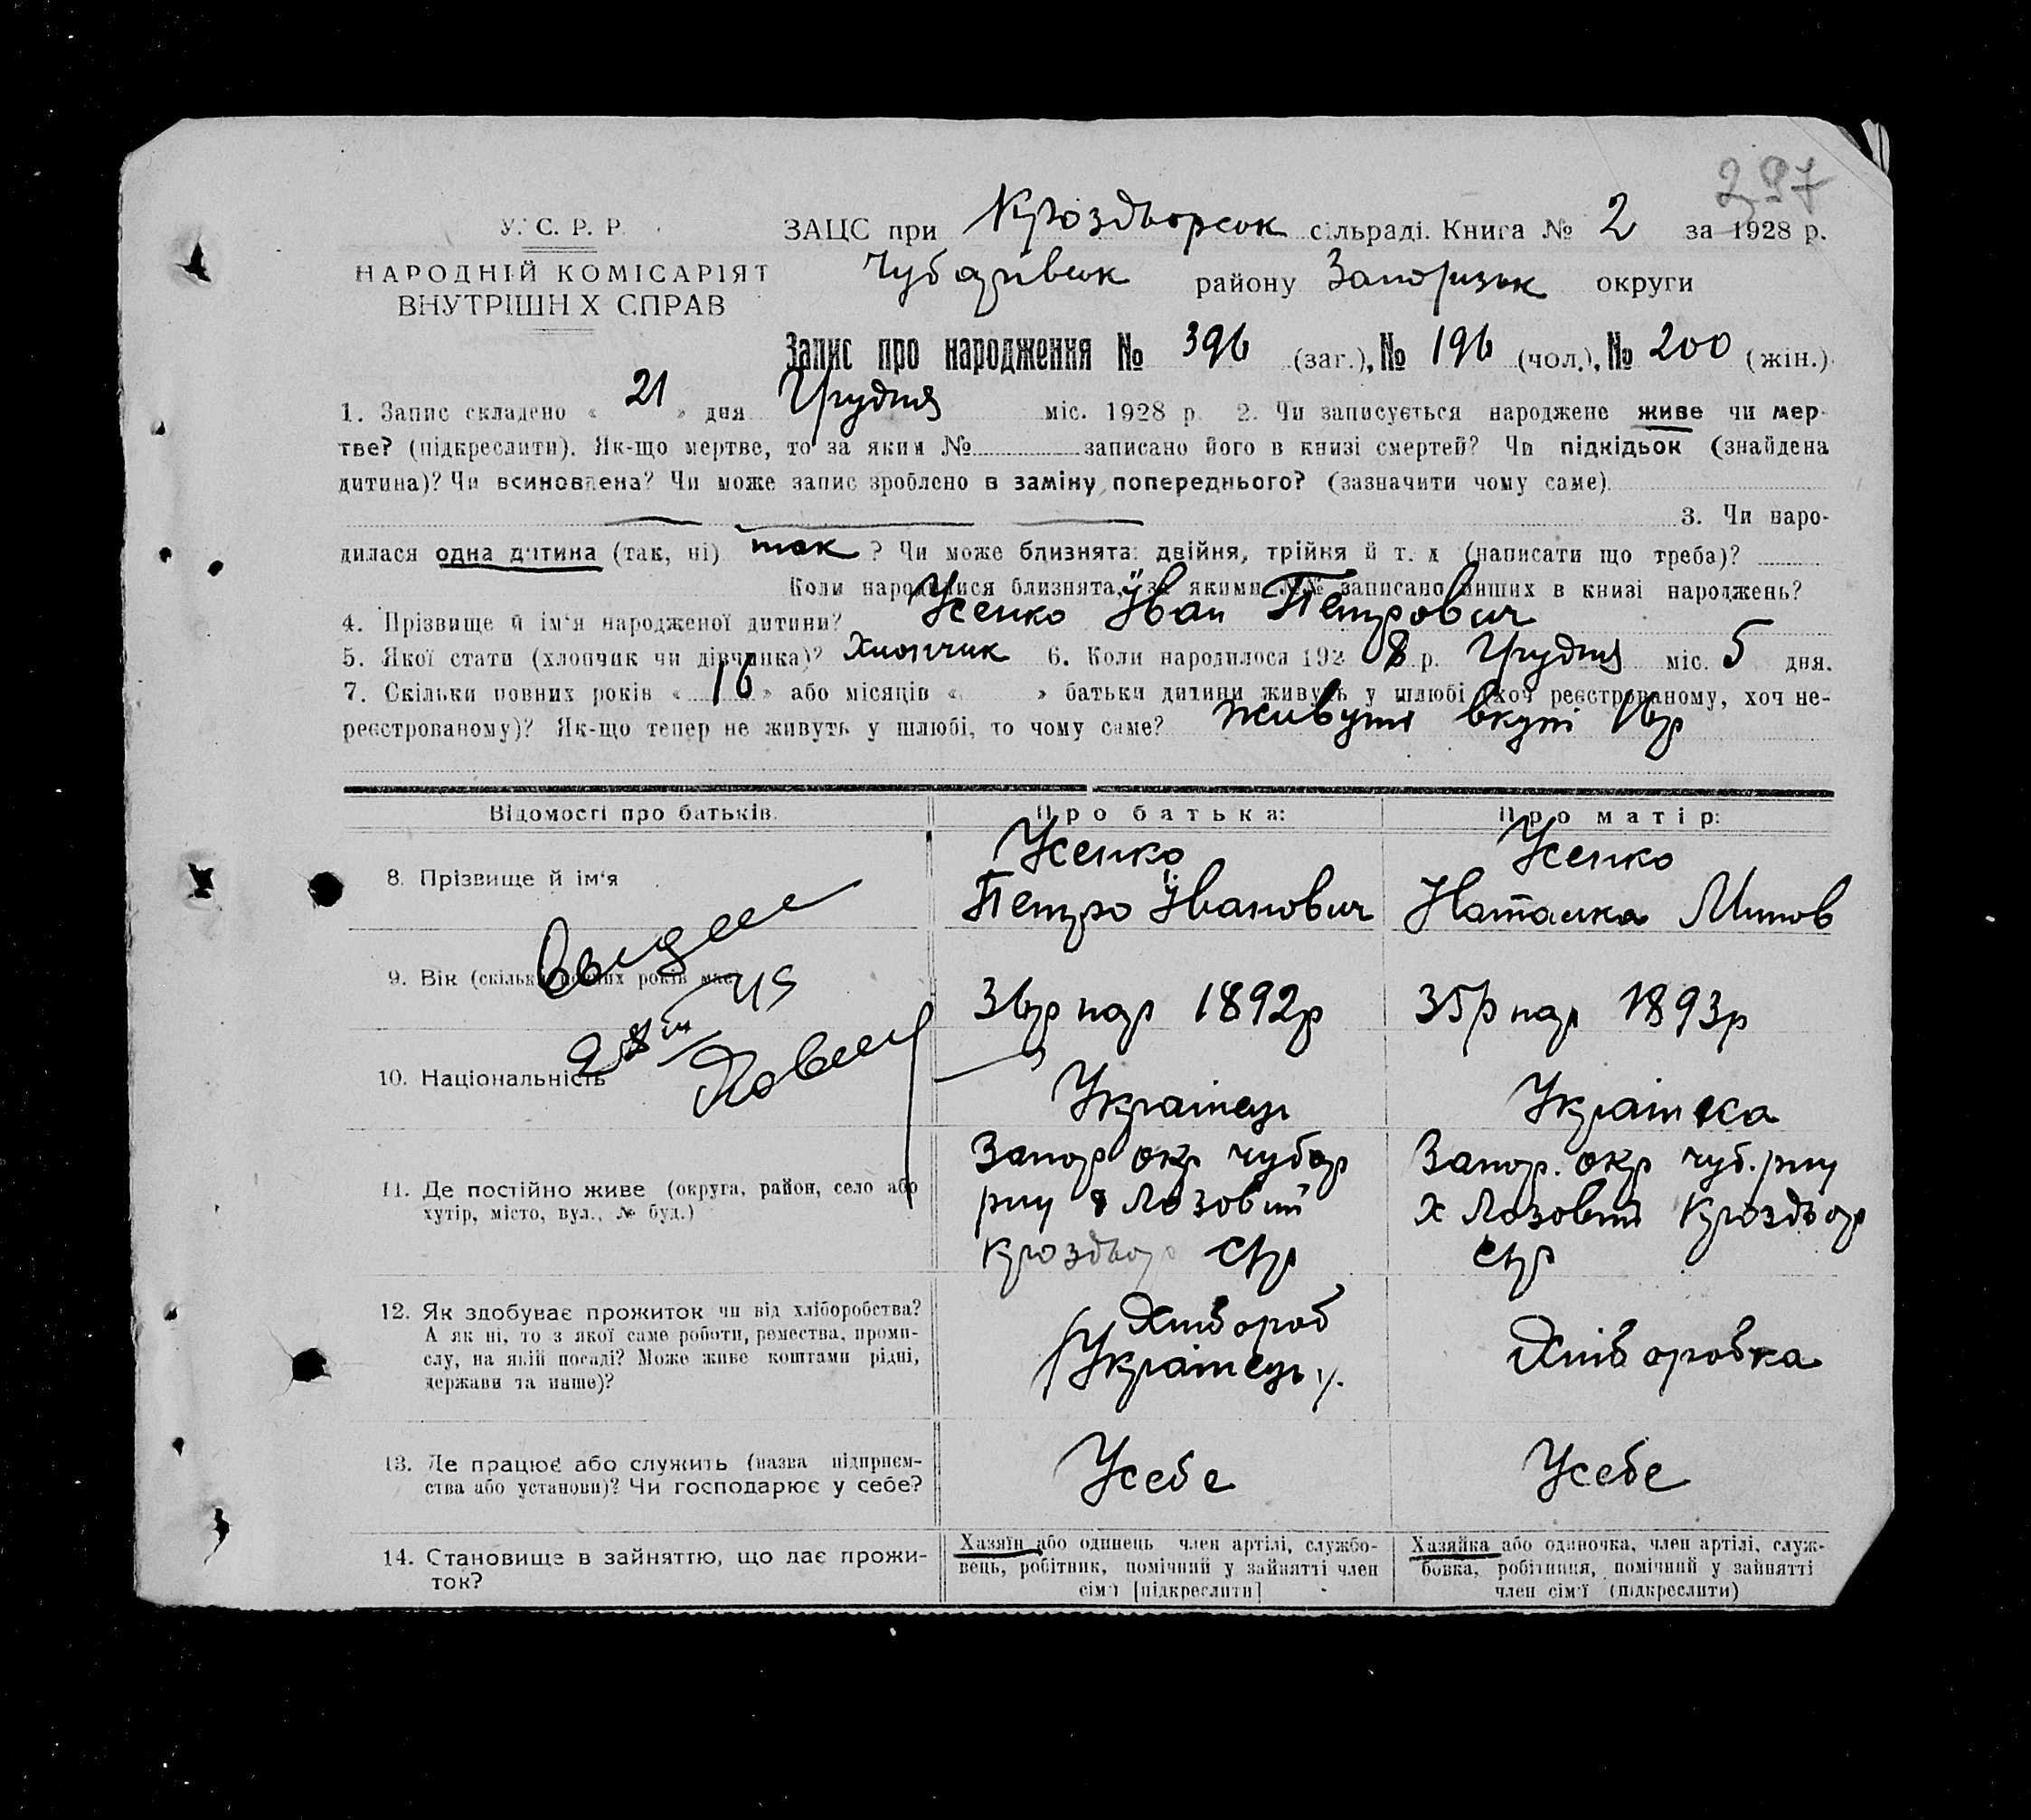 297
У. С. Р. Р.
НАРОДНІЙ КОМІСАРІЯТ
ВНУТРІШН Х СПРАВ
ЗАЦС при Кроздворськ сільраді. Книга № 2 за 1928 р.
Чубарівськ району Запорізьк округи
Запис про народження № 396 (заг.), № 196 (чол.), № 200 (жін.)
1. Запис складено « 21 » дня Грудня міс. 1928 р. 2. Чи записується народжене живе чи мер-
тве? (підкреслити). Як-що мертве, то за яким № записано його в книзі смертей? Чи підкідьок (знайдена
дитина)? Чи всиновлена? Чи може запис зроблено в заміну попереднього? (зазначити чому саме)
3. Чи наро-
дилася одна дитина (так, ні) так ? Чи може близнята: двійня, трійня й т. д. (написати що треба)?
Коли народилися близнята, за якими №№ записано инших в книзі народжень?
4. Прізвище й ім'я народженої дитини? Усенко Іван Петрович
5. Якої стати (хлопчик чи дівчинка)? Хлопчик 6. Коли народилося 192 8 р. Грудня міс. 5 дня.
7. Скільки повних років « 16 » або місяців « » батьки дитини живуть у шлюбі (хоч реєстрованому, хоч не-
реєстрованому)? Як-що тепер не живуть у шлюбі, то чому саме? живуть вкупі 16р
Відомості про батьків.
Про батька:
Про матір:
8. Прізвище й ім'я
Усенко
Петро Іванович
Усенко
Наталка Минов
9. Вік (скільки повних років має)
36р нар 1892р
35р нар 1893р
10. Національність
Українець
Українка
11. Де постійно живе (округа, район, село або
хутір, місто, вул., № буд.)
Запор окр чубар
рну х Лозовий
Кроздвор с/р
Запор. окр чуб. рну
х Лозовий Кроздвор
с/р
12. Як здобуває прожиток чи від хліборобства?
А як ні, то з якої саме роботи, ремества, проми-
слу, на якій посаді? Може живе коштами рідні,
держави та инше)?
Хлібороб
Українець
Хліборобка
13. Де працює або служить (назва підприєм-
ства або установи)? Чи господарює у себе?
Усебе
Усебе
14. Становище в зайняттю, що дає прожи-
ток?
Хазяїн або одинець член артілі, службо-
вець, робітник, помічний у зайнятті член
сім'ї [підкреслити]
Хазяйка або одиночка, член артілі, служ-
бовка, робітниця, помічний у зайнятті
член сім'ї (підкреслити)